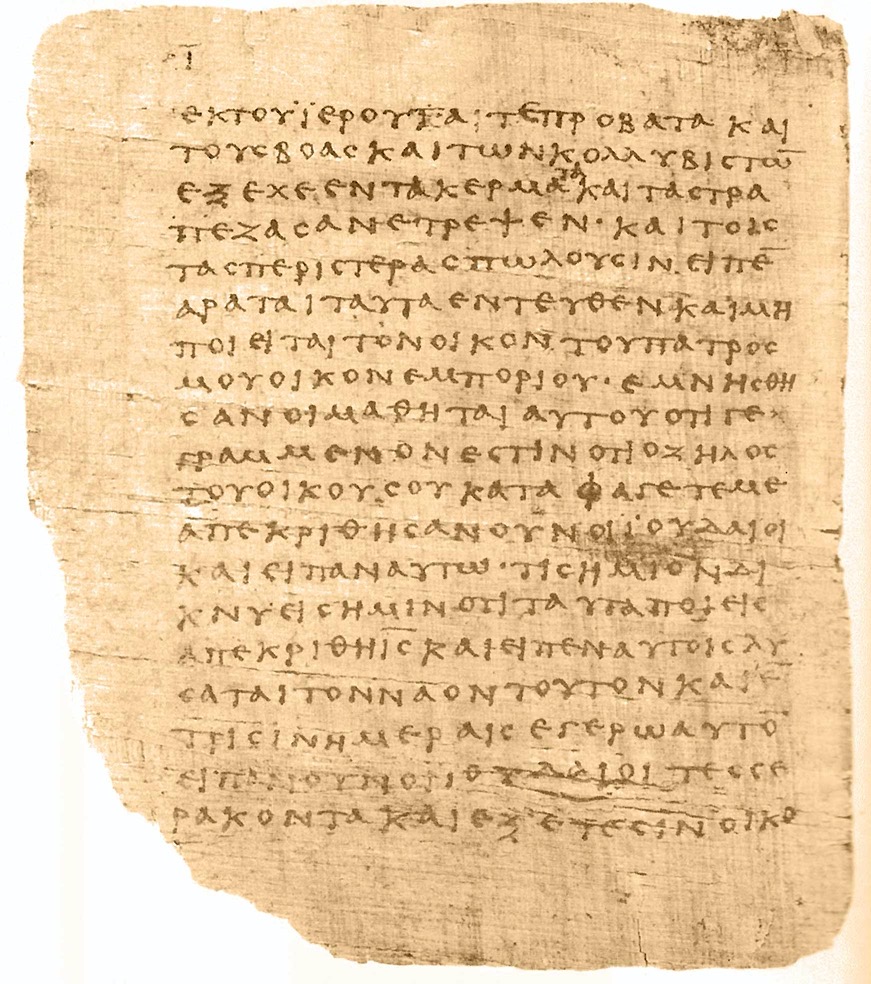 ῑ
εκτουϊερουταιτεπροβατακαι
τουσβοασκαιτωνκολλυβιστω̄
εξεχεεντακερματακαιταστρα
πεζασανετρεψεν·καιτοισ
τασπεριστερασπωλουσινειπε̄
αραταιταυταεντευθενκαιμη
ποιειταιτονοικοντουπατροσ
μουοικονεμποριου·εμνησθη
σανοιμαθηταιαυτουοτιγε
γραμμενονεστινοτιοζηλοσ
τουοικουσουκαταφαγετεμε
απεκριθησανουνοιϊουδαιοι
καιειπαναυτω·τισημιονδι
κνυεισημινοτιταυταποιεισ
απεκριθηι̅σ̅καιειπεναυτοισλυ
σαταιτονναοντουτονκαιε̄
τρισινημεραισεγερωαυτο̄
ειπανουνοιιουδαιοιτεσσε
ρακοντακαιεξετεσινοικο